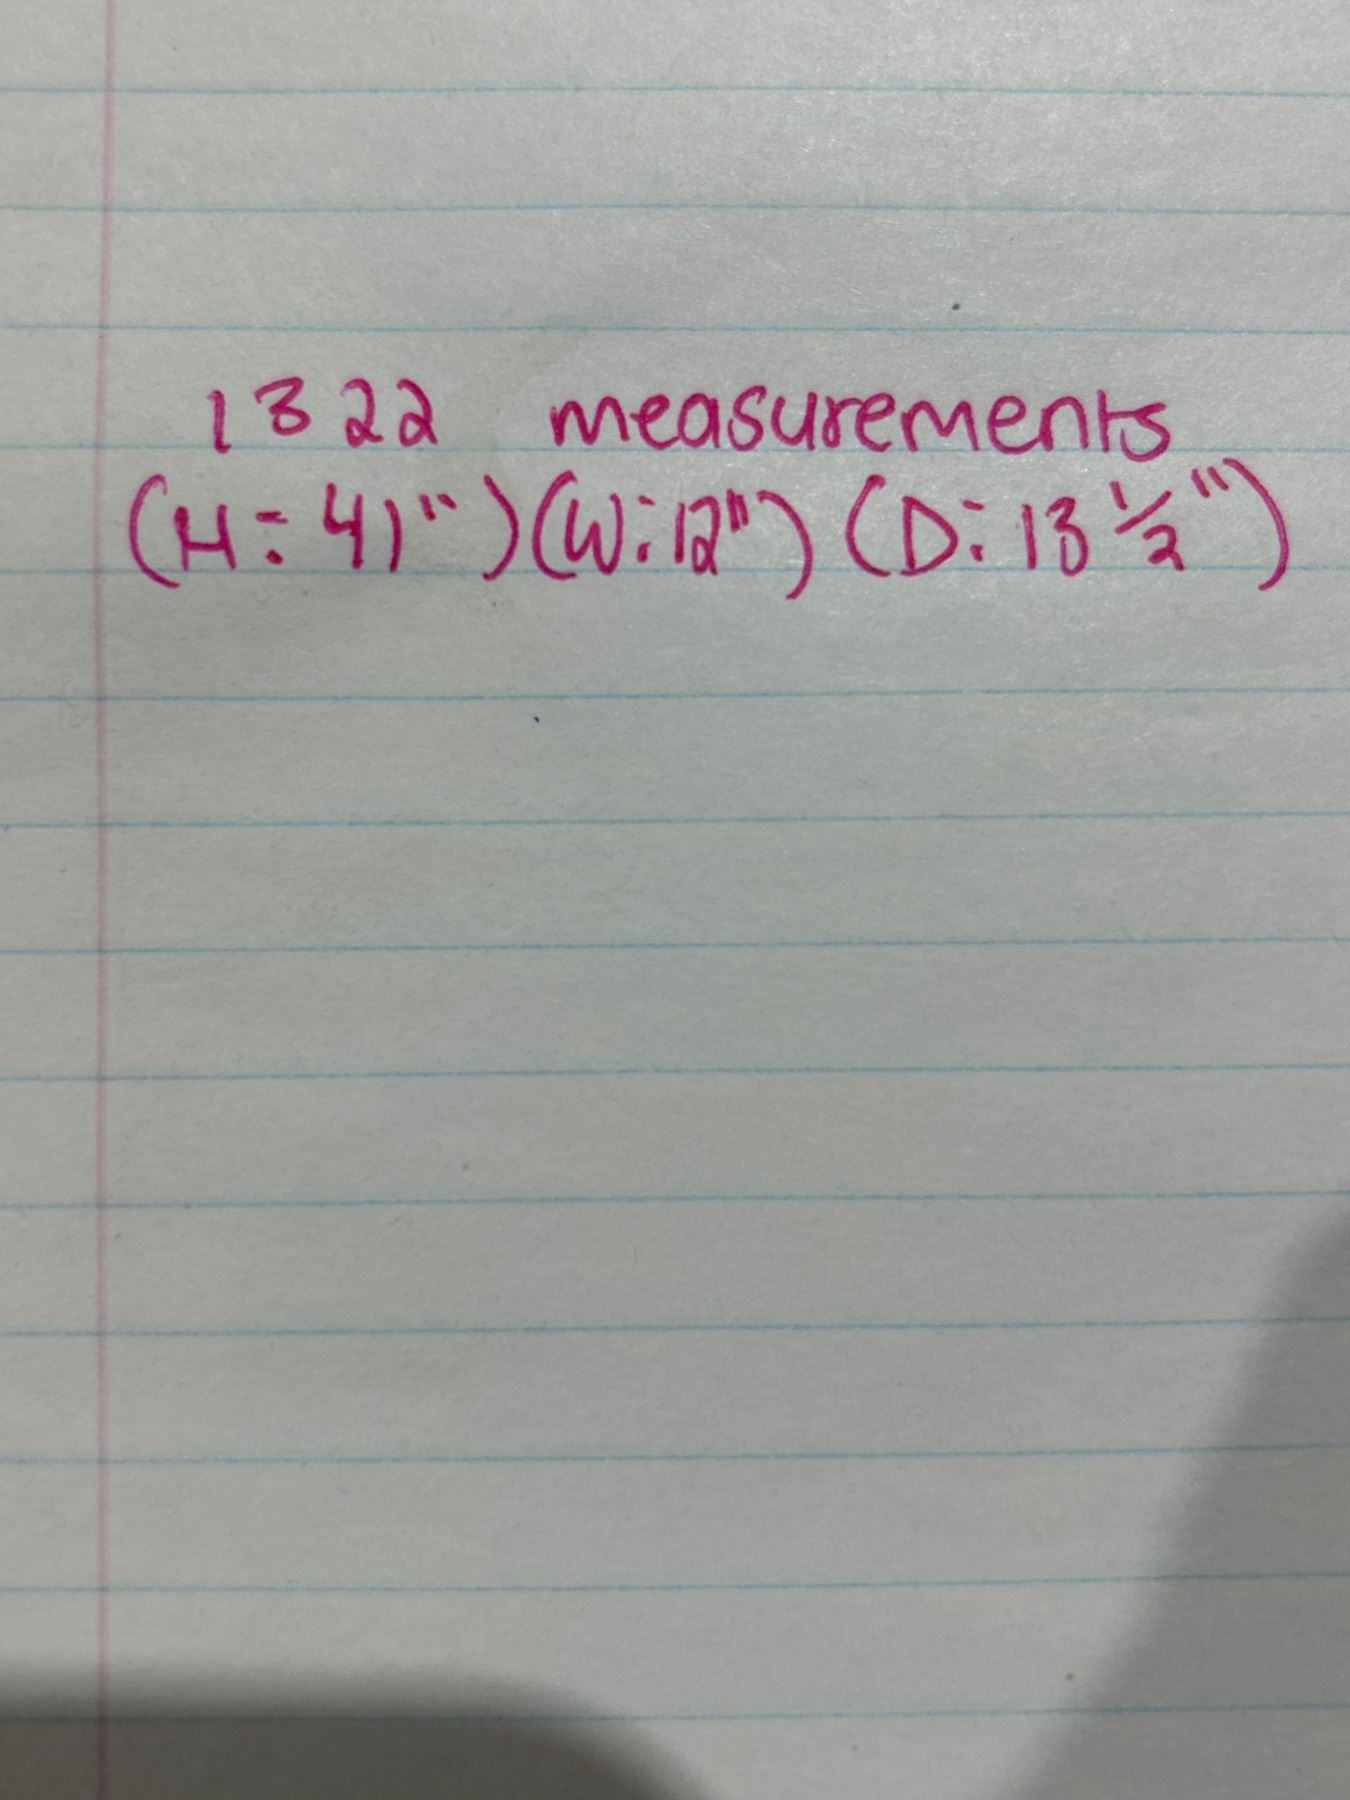 1322 measurements
(H: 41") (W: 12") (D: 13 1/2")